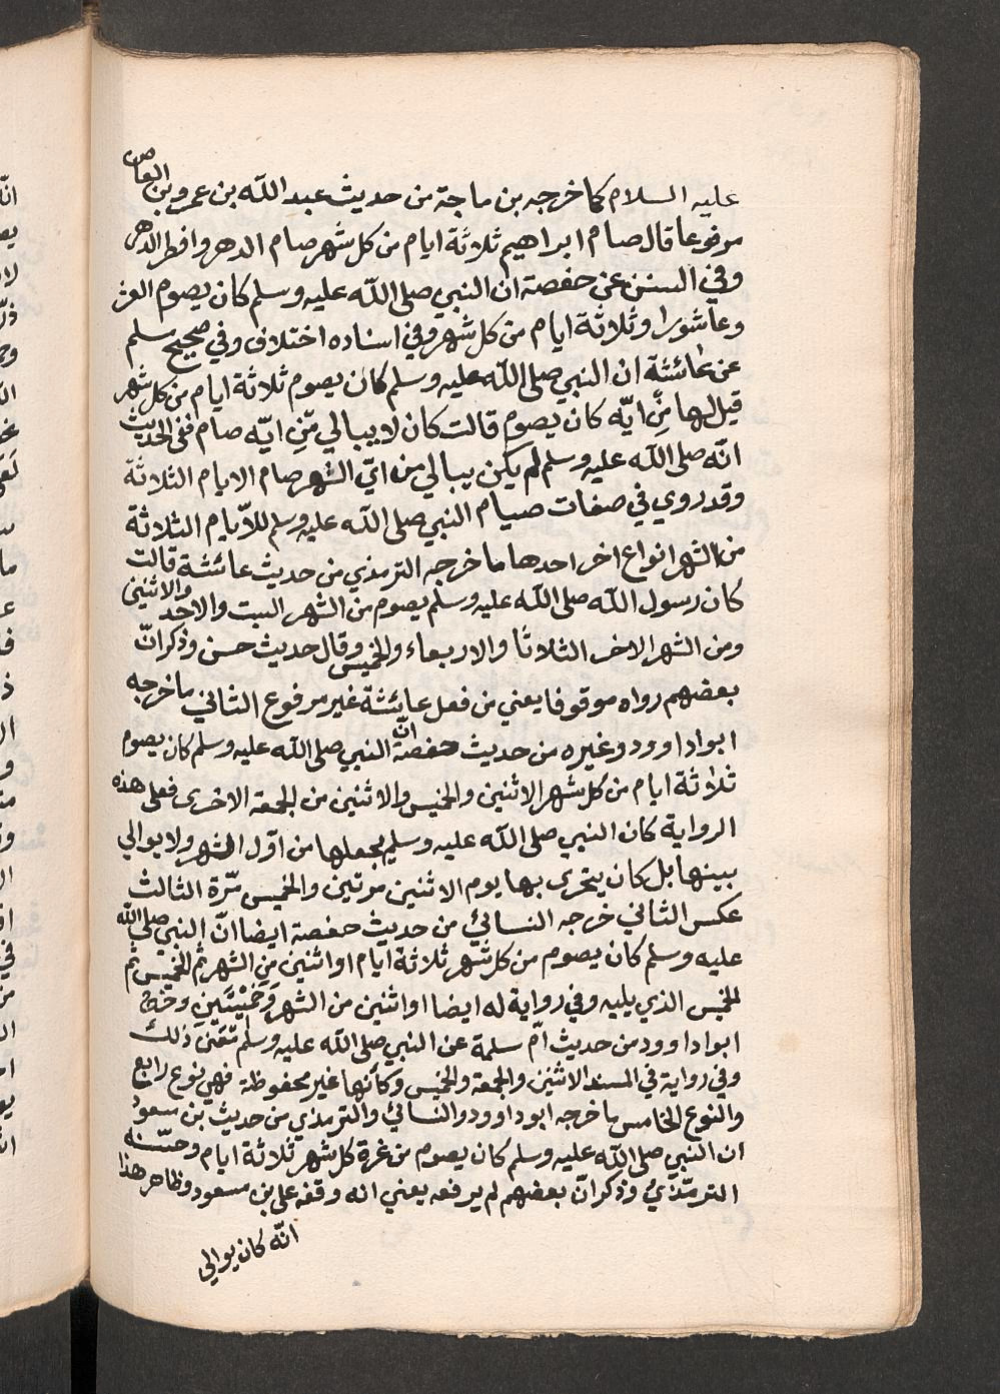 عليه السلام كما خرجه بن ماجة من حديث عبد الله بن عمرو بن العاص
مرفوعا قال صام ابراهيم ثلاثة ايام من كل شهر صام الدهر وافطر الدهر
وفي السنن عن حفصة ان النبي صلى الله عليه وسلم كان يصوم العشر
وعاشورا وثلاثة ايام من كل شهر وفي اسناده اختلاف وفي صحيح سلم
عن عائشة ان النبي صلى الله عليه وسلم كان يصوم ثلاثة ايام من كل شهر
قيل لها مِن ايّه كان يصوم قالت كان لا يبالي مِّن ايّه صام ففى الحديث
انّه صلى الله عليه وسلم لم يكن يبالي من ايّ الشهر صام الايام الثلاثة
وقد روي في صفات صيام النبي صلى الله عليه وسلم للاّيام الثلاثة
من الشهر انواع اخر احدها ما خرجه الترمذي من حديث عائشة قالت
كان رسول الله صلى الله عليه وسلم يصوم من الشهر السبت والاحد والاثنين
ومن الشهر الاخر الثلاثا والاربعاء والخميس وقال حديث حسن وذكر انّ
بعضهم رواه موقوفا يعني من فعل عايشة غير مرفوع الثاني ما خرجه
ابو داوود وغيره من حديث حفصة انّ النبي صلى الله عليه وسلم كان يصوم
ثلاثة ايام من كل شهر الاثنين والخميس والاثنين من الجمعة الاخرى فعلى هذه
الرواية كان النبي صلى الله عليه وسلم يجعلها من اوّل الشهر ولا يوالي
بينها بل كان يتحرى بها يوم الاثنين مرتين والخميس مّرة الثالث
عكس الثاني خرجه النسائي من حديث حفصة ايضا انّ النبي صلى الله
عليه وسلم كان يصوم من كل شهر ثلاثة ايام اواثنين مِن الشهر ثم الخميس ثم
الخميس الذي يليه وفي رواية له ايضا اواثنين من الشهر وَخميْسَينِ وخرجه
ابو داوود من حديث امّ سلمة عن النبي صلى الله عليه وسلم ذلك
وفي رواية في المسند الاثنين والجمعة والخميس وكأنها غير محفوظة فهي نوع رابع
والنوع الخامس ما خرجه ابو داوود والنسائي والترمذي من حديث بن سعود
ان النبي صلى الله عليه وسلم كان يصوم من غرة كل شهر ثلاثة ايام وحسّنه
الترمّذيُ وذكر انّ بعضهم لم يرفعه يعني انه وقفه على بن مسعود وظاهر هذا
انّه كان يوالي